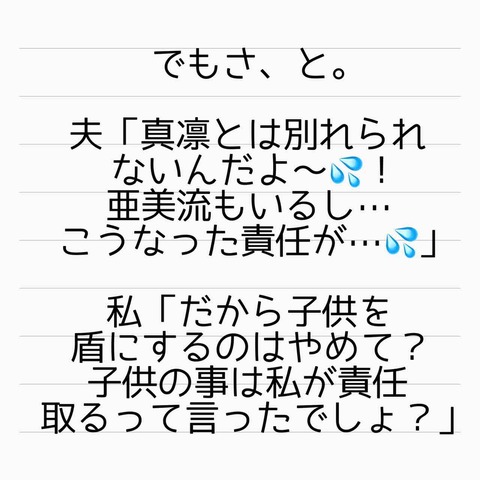 でもさ、と。
夫「真凛とは別れられ
ないんだよ〜💦！
亜美流もいるし…
こうなった責任が…💦」
私「だから子供を
盾にするのはやめて？
子供の事は私が責任
取るって言ったでしょ？」